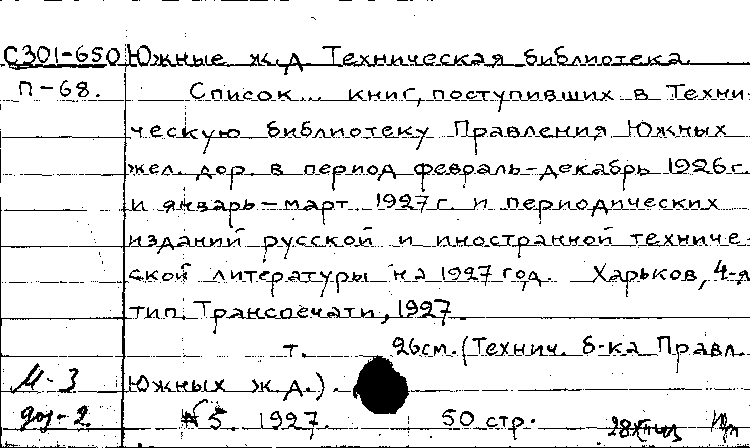 С301-650 Южные ж.д. Техническая библиотека.
П-68. Список... книг, поступивших в Техни-
ческую библиотеку Правления Южных
жел. дор. в период февраль-декабрь 1926г.
и январь-март 1927г. и периодических
изданий русской и иностранной техниче-
ской литературы на 1927 год. Харьков, 4-я
тип. Транспечати, 1927.
т. 26см. (Технич. б-ка Правл.
М-3 Южных ж.д.).
№5. 1927. 50 стр.